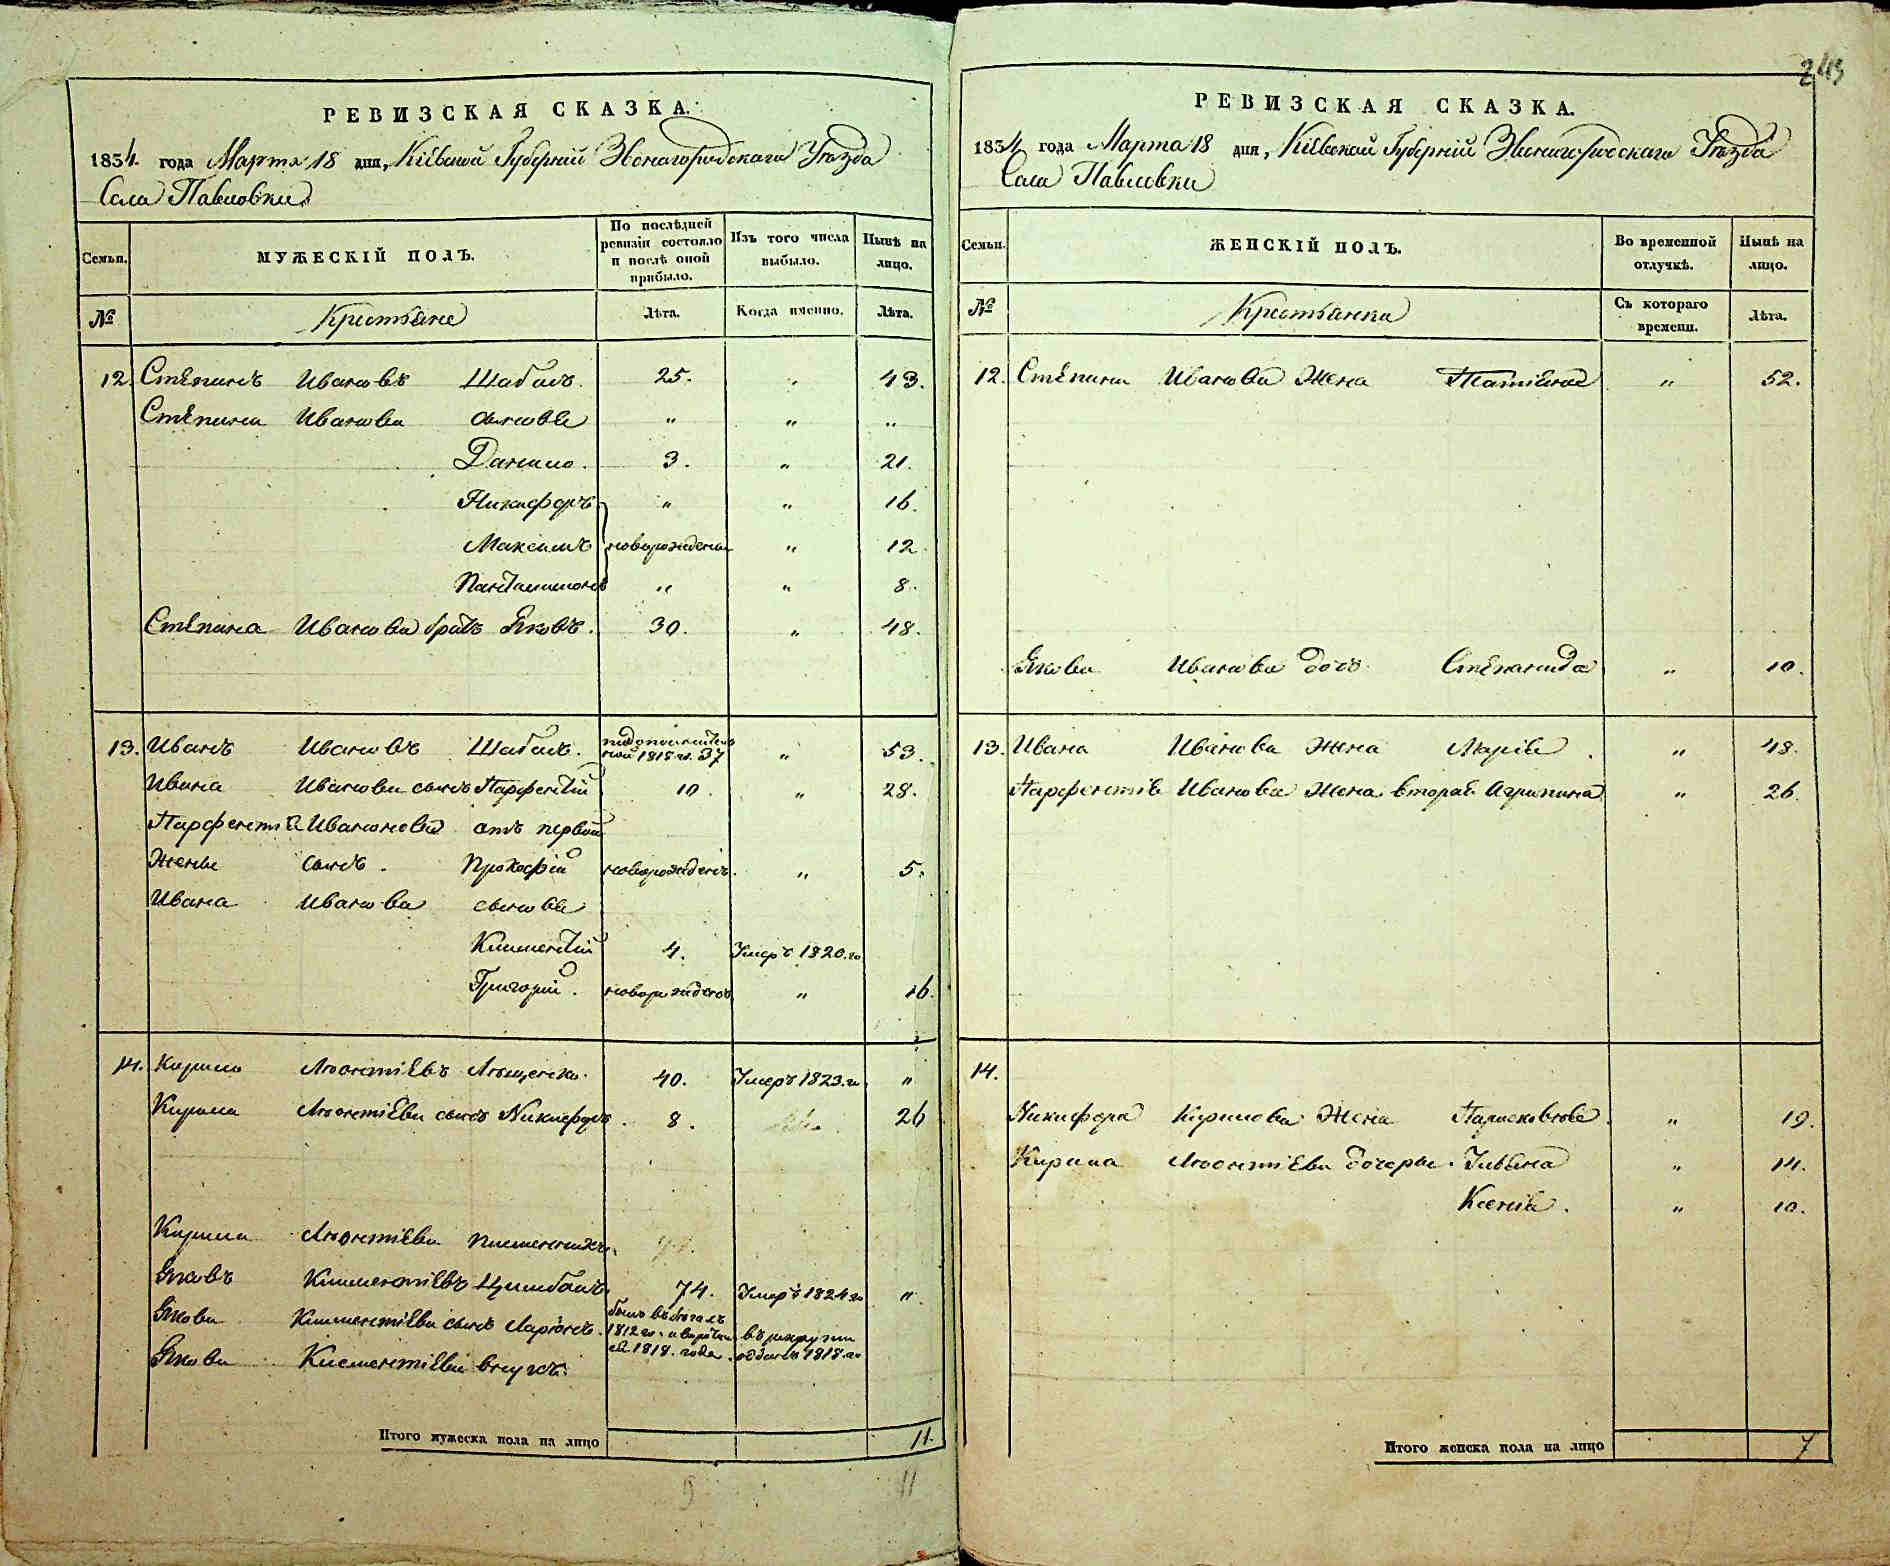 РЕВИЗСКАЯ СКАЗКА.
1834. года Марта 18 дня, Кіевской Губерніи Звенигородскаго Уѣзда
Села Павловки
Семьи.
МУЖЕСКІЙ ПОЛЪ.
По послѣдней ревизіи состояло и послѣ оной прибыло.
Изъ того числа выбыло.
Нынѣ на лицо.
№
Крестьяне
Лѣта.
Когда именно.
Лѣта.
12. Степанъ Ивановъ Шабалъ. 25. " 43.
Степана Иванова сыновья " " "
Данило. 3. " 21.
Никифоръ " " 16.
Максимъ новорожденны " 12.
Пантелимонъ " " 8.
Степана Иванова братъ Яковъ. 30. " 48.
13. Иванъ Ивановъ Шабалъ. 1818 г. 37 " 53.
Ивана Иванова сынъ Парфентій 10. " 28.
Парфентія Иванова отъ первой
жены сынъ. Прокофій новорожденъ. " 5.
Ивана Иванова сыновья
Климентій 4. Умеръ 1820. го
Григорій. новорожденъ " 16.
14. Кирило Леонтіевъ 40. Умеръ 1823. го "
Кирила Леонтіева сынъ Никифоръ. 8. 26
Кирила Леонтіева
Яковъ Климентіевъ Цимбалъ. 74. Умеръ 1824 го "
Якова Климентіева сынъ Ларіонъ. былъ въ бѣгахъ 1812 го. и 1818. года. въ рекруты отданъ 1818. го
Якова Климентіева внукъ.
Итого мужеска пола на лицо 11.
9 11
243
РЕВИЗСКАЯ СКАЗКА.
1834 года Марта 18 дня, Кіевской Губерніи Звенигородскаго Уѣзда
Села Павловки
Семьи.
ЖЕНСКІЙ ПОЛЪ.
Во временной отлучкѣ.
Нынѣ на лицо.
№
Крестьянки
Съ котораго времени.
Лѣта.
12. Степана Иванова жена Татіяна " 52.
Якова Иванова дочь Степанида " 10.
13. Ивана Иванова жена Марія. " 48.
Парфентія Иванова жена вторая Агрипина " 26.
14.
Никифора Кирилова жена Парасковія. " 19.
Кирила Леонтіева дочери. Уліяна " 14.
Ксенія. " 10.
Итого женска пола на лицо 7